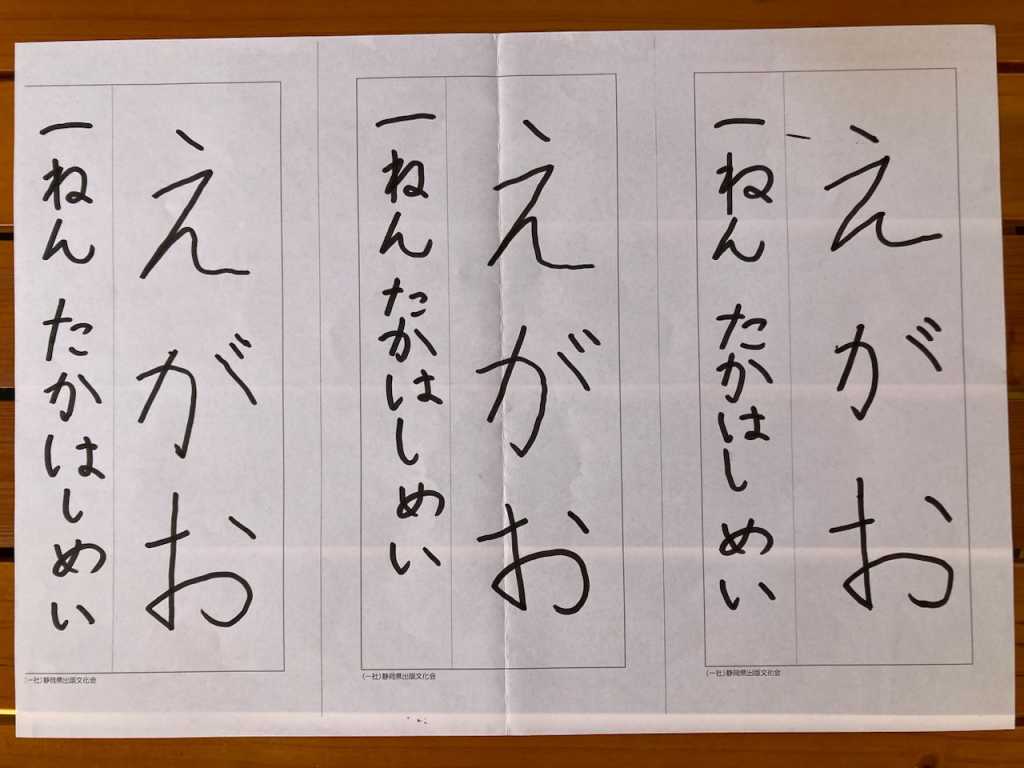 えがお
一ねん たかはし めい
(一社)静岡県出版文化会
えがお
一ねん たかはし めい
(一社)静岡県出版文化会
えがお
一ねん たかはしめい
(一社)静岡県出版文化会